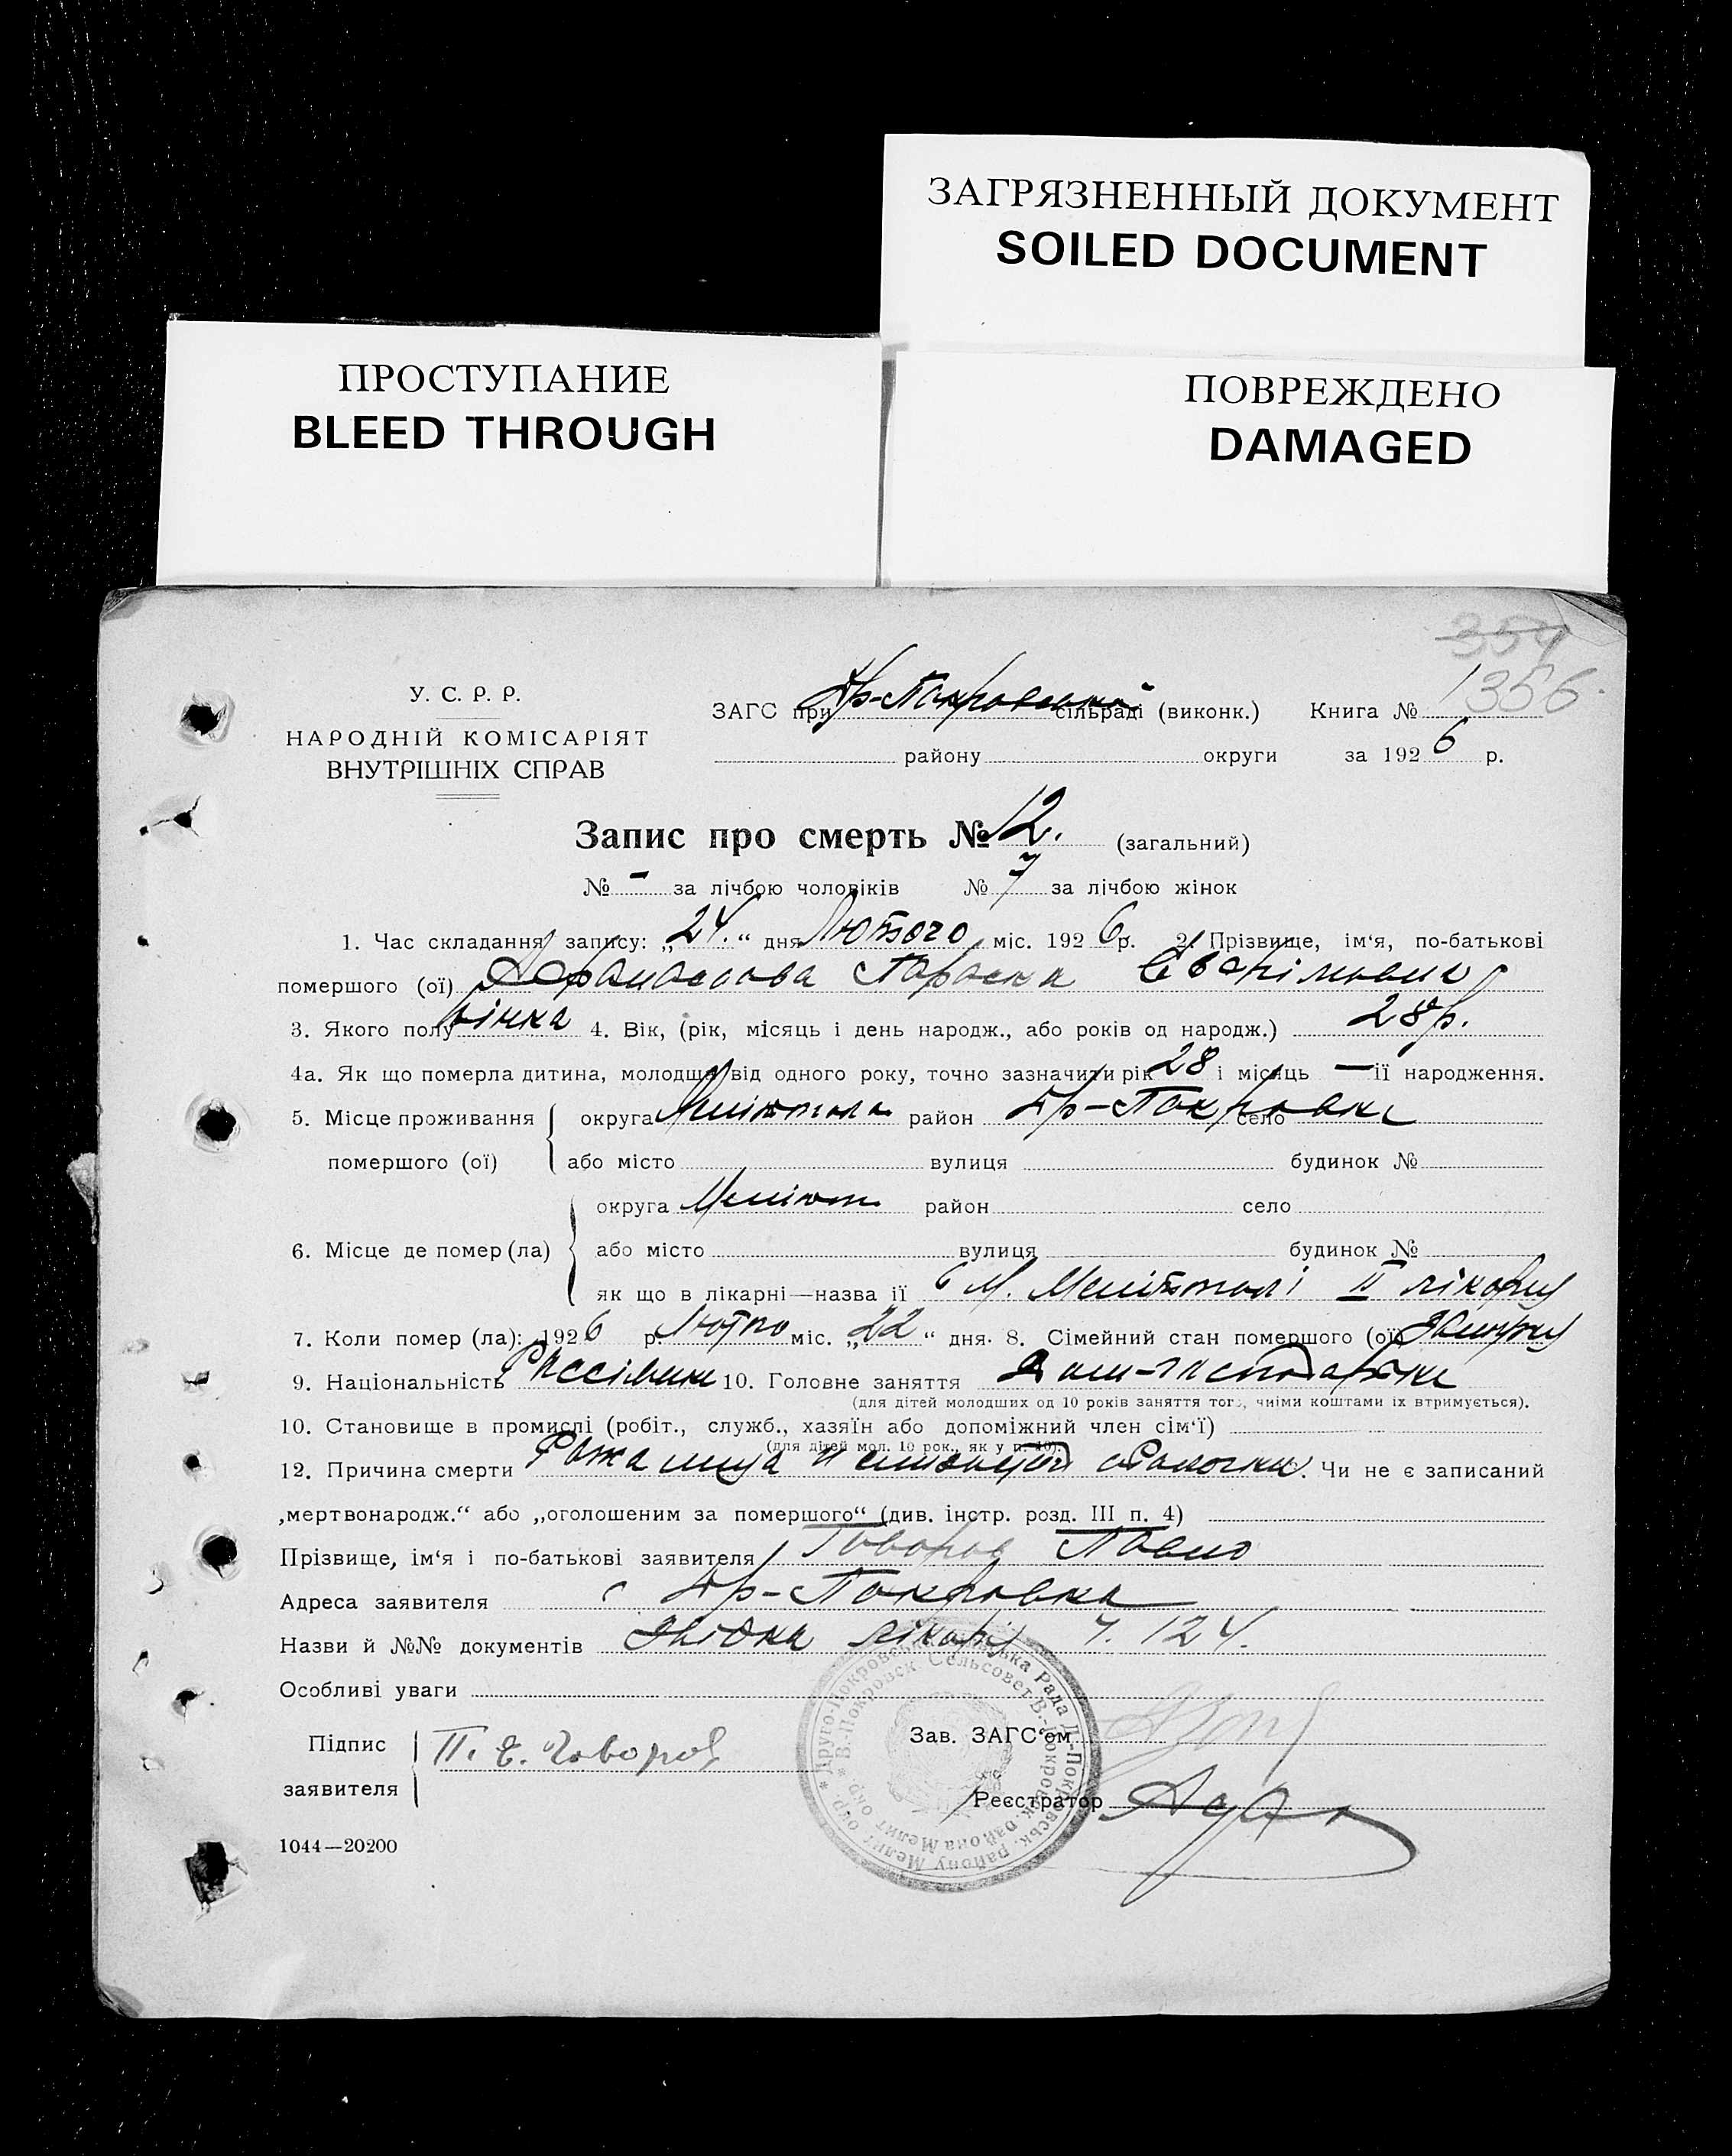 ЗАГРЯЗНЕННЫЙ ДОКУМЕНТ
SOILED DOCUMENT
ПРОСТУПАНИЕ
BLEED THROUGH
ПОВРЕЖДЕНО
DAMAGED
354
1356
У. С. Р. Р.
НАРОДНІЙ КОМІСАРІЯТ
ВНУТРІШНІХ СПРАВ
ЗАГС при Др-Покровской сільраді (виконк.) Книга №
району округи за 1926 р.
Запис про смерть № 12. (загальний)
№ - за лічбою чоловіків № 7 за лічбою жінок
1. Час складання запису: „24.“ дня Лютого міс. 1926 р. 2. Прізвище, ім‘я, по-батькові
помершого (ої) Параска
3. Якого полу жінка 4. Вік, (рік, місяць і день народж., або років од народж.) 28 р.
4а. Як що померла дитина, молодща від одного року, точно зазначити рік 28 і місяць — її народження.
5. Місце проживання округа район Др-Покровка село
помершого (ої) або місто вулиця будинок №
округа Меліт район село
6. Місце де помер (ла) або місто вулиця будинок №
як що в лікарні—назва її в М. Мелітополі II лікарні
7. Коли помер (ла): 1926 р. Лютого міс. „22“ дня. 8. Сімейний стан помершого (ої)
9. Національність 10. Головне заняття
(для дітей молодших од 10 років заняття того, чиїми коштами їх втримується).
10. Становище в промислі (робіт., служб., хазяїн або допоміжний член сім‘ї)
(для дітей мол. 10 рок., як у п. 10).
12. Причина смерти Чи не є записаний
„мертвонародж.“ або „оголошеним за помершого“ (див. інстр. розд. III п. 4)
Прізвище, ім‘я і по-батькові заявителя Говоров Павло
Адреса заявителя с Др-Покровка
Назви й №№ документів лікарні ч. 124.
Особливі уваги
Підпис П. Е. Говоров
заявителя
Зав. ЗАГС‘ом
Реєстратор
1044—20200